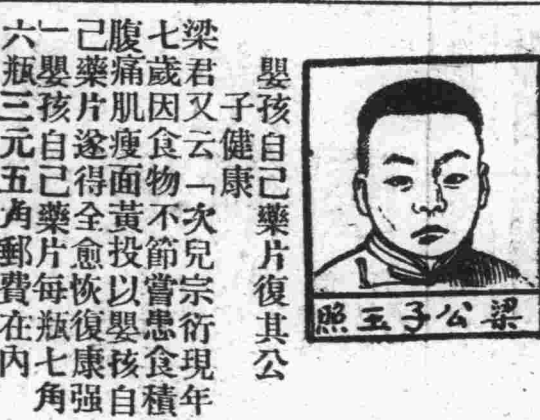 梁公子玉照
嬰孩自己藥片復其公
子健康
梁君又云「次兒宗衍現年
七歲因食物不節嘗患食積
腹痛肌瘦面黃投以嬰孩自
己藥片遂得全愈恢復康强
一嬰孩自己藥片每瓶七角
六瓶三元五角郵費在內